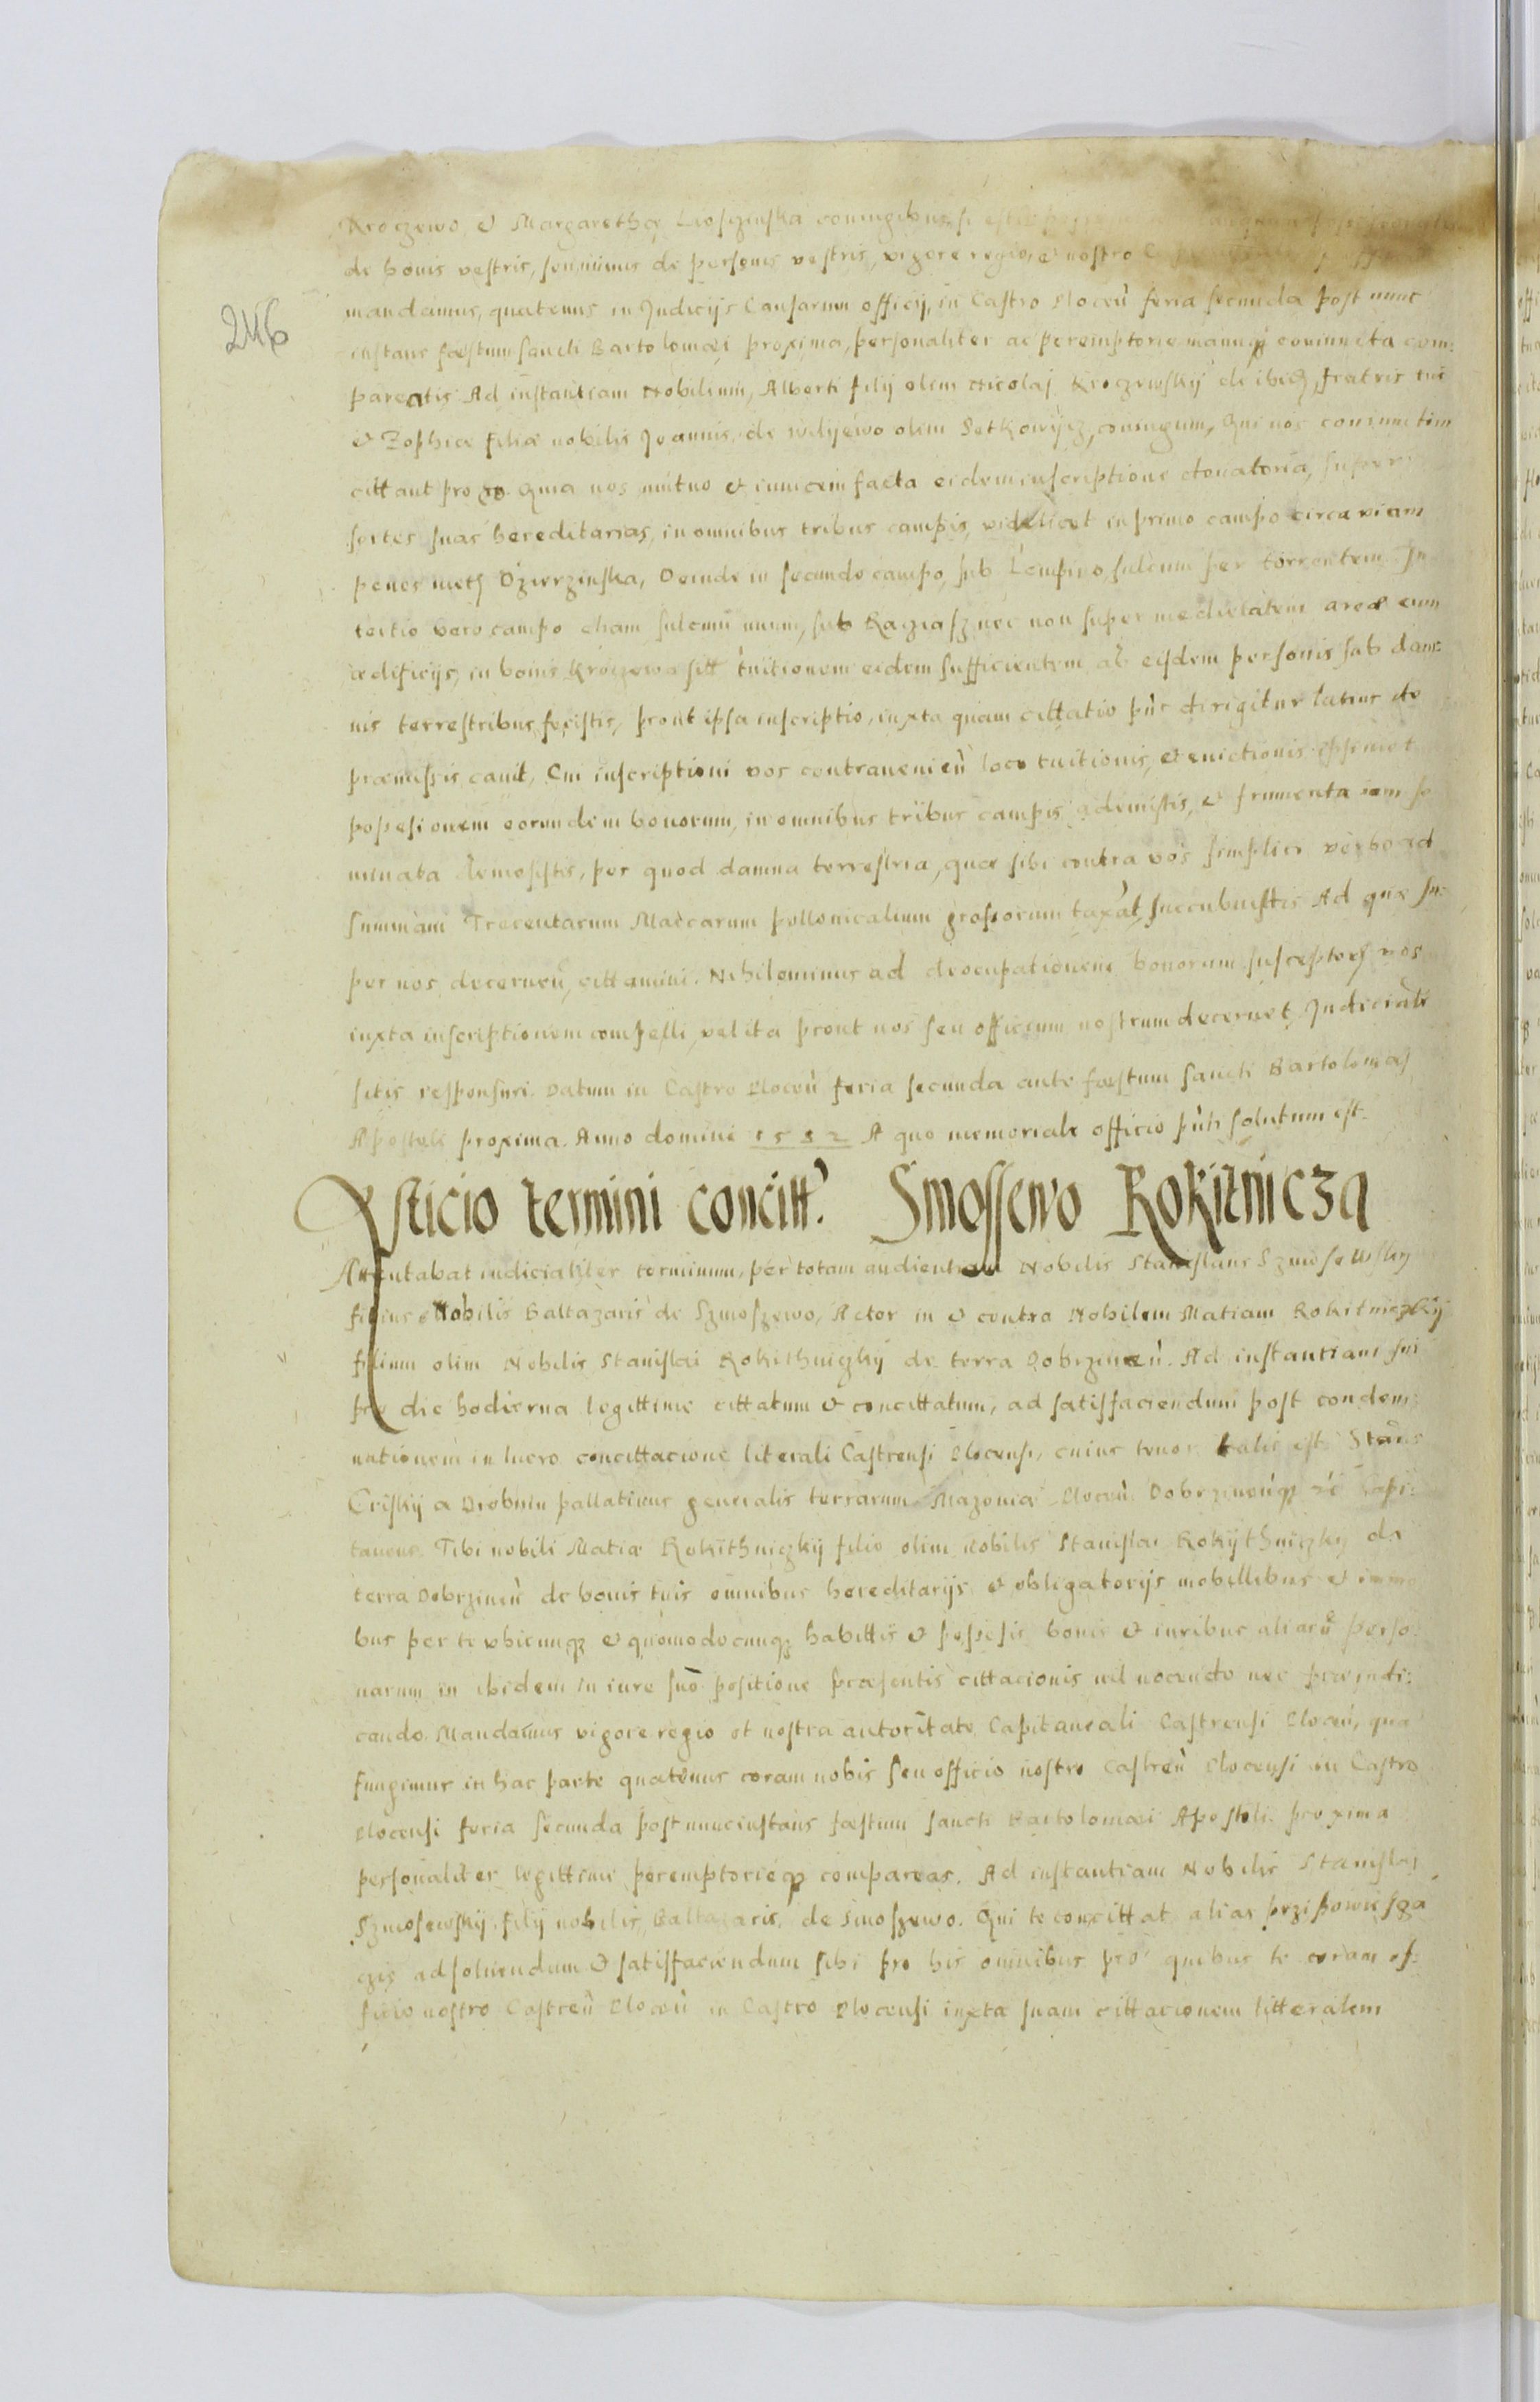 246
Kroczewo, & Margarethæ coniugibus
de bonis vestris, seu nimus de personis vestris, vigore regio, & nostro
mandamus, quatenus in Judicijs Causarum officij, in Castro Plocen̄ feria secunda post nunc
instans fæstum sancti Bartolomæi proxima, personaliter ac peremptorie coniuncta com:
pareatis Ad instantiam Nobilium, Alberti filij olim Nicolaj Kroczewskij de ibidem fratris tui
& Zophiæ filiæ nobilis Joannis, de olim coniugum, Qui vos coniunctim
cittant pro eo. Quia vos mutuo & inuicem facta eidem inscriptione donatoria, super
sortes suas hereditarias, in omnibus tribus campis, videlicet in primo campo circa viam
penes Dzierzinska, Deinde in secundo campo, sub sulcum per torrentem. In
tertio vero campo etiam sulcum unum, sub nec non super medietatem areæ cum
ædificijs, in bonis Kroczewo sitt tuitionem eidem sufficientem ab eisdem personis sub dam:
nis terrestribus fecistis, prout ipsa inscriptio, iuxta quam cittatio pñs dirigitur latius de
præmissis canit, Cui inscriptioni vos contravenien̄ loco tuitionis, & euictionis
possesionem eorundem bonorum, in omnibus tribus campis ademistis, & frumenta iam se
minata per quod damna terrestria, quæ sibi contra vos simplici verbo ad
summam Trecentarum Marcarum pollonicalium grossorum taxat, succubuistis Ad quæ su:
per vos decernen̄, cittamini. Nihilominus ad deocupationem bonorum vos
iuxta inscriptionem compelli, vel ita prout nos seu officium nostrum decernet, Judicialr
sitis responsuri. Datum in Castro Plocen̄ feria secunda ante fæstum sancti Bartolomæj
Apostoli proxima. Anno domini 1582 A quo memoriale officio pñti solutum est.
Asticio termini concitt. Smossewo Rokitnicza
Attentabat iudicialiter terminum, per totam audientiam Nobilis Stanislaus Szmosewskij
filius Nobilis Baltazaris de Szmoszewo, Actor in & contra Nobilem Matiam Rokitniczkij
filium olim Nobilis Stanislai Rokithniczkij de terra Dobrzinen̄. Ad instantiam sui
pro die hodierna legittime cittatum & concittatum, ad satisfaciendum post condem:
nationem in lucro concittacione literali Castrensi Plocensi, cuius tenor talis est. Stans
Criskij a Drobnin pallatinus generalis terrarum Mazoniæ Plocen̄ Dobrzinen̄q3 Capi:
taneus. Tibi nobili Matiæ Rokithniczkij filio olim nobilis Stanislai Rokijthniczkij de
terra Dobrzinen̄ de bonis tuis omnibus hereditarijs & obligatorijs mobillibus & immo
bus per te vbicunq3 & quomodocunq3 habittis & possesis bonis & iuribus aliarū perso:
narum in ibidem in iure suo positione præsentis cittacionis nil nocendo nec præiudi:
cando. Mandamus vigore regio et nostra autoritate Capitaneali Castrensi Plocen̄, qua
fungimur in hac parte quatenus coram nobis seu officio nostro Castren̄ Plocensi in Castro
Plocensi feria secunda post nunc instans fæstum sancti Bartolomæi Apostoli proxima
personaliter legittime peremptorieq3 compareas. Ad instantiam Nobilis Stanislaj
Szmosewskij filij nobilis Baltazaris, de Smoszewo. Qui te concittat alias przipowiesza
ad soluendum & satisfaciendum sibi pro his omnibus pro quibus te coram of:
ficio nostro Castren̄ Plocen̄ in Castro Plocensi iuxta suam cittacionem litteralem